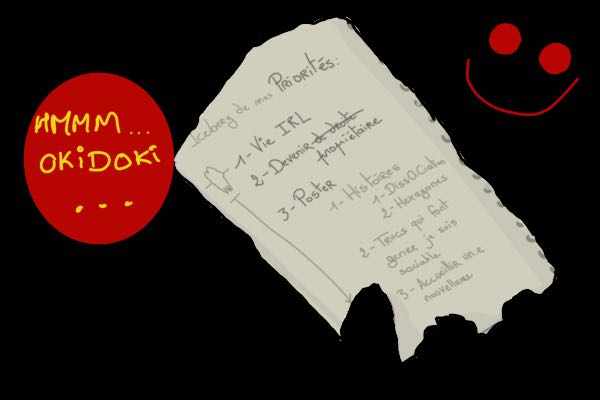 HMMM ...
OKiDOKi
...
Iceberg de mes PRIORITÉS:
1-Vie IRL
2-Devenir de droite
propriétaire
3-Poster
1-Histoires
1-DissOCiation
2-Hexagones
2-Trucs qui font
genre je suis
sociable
3-Accueillir un.e